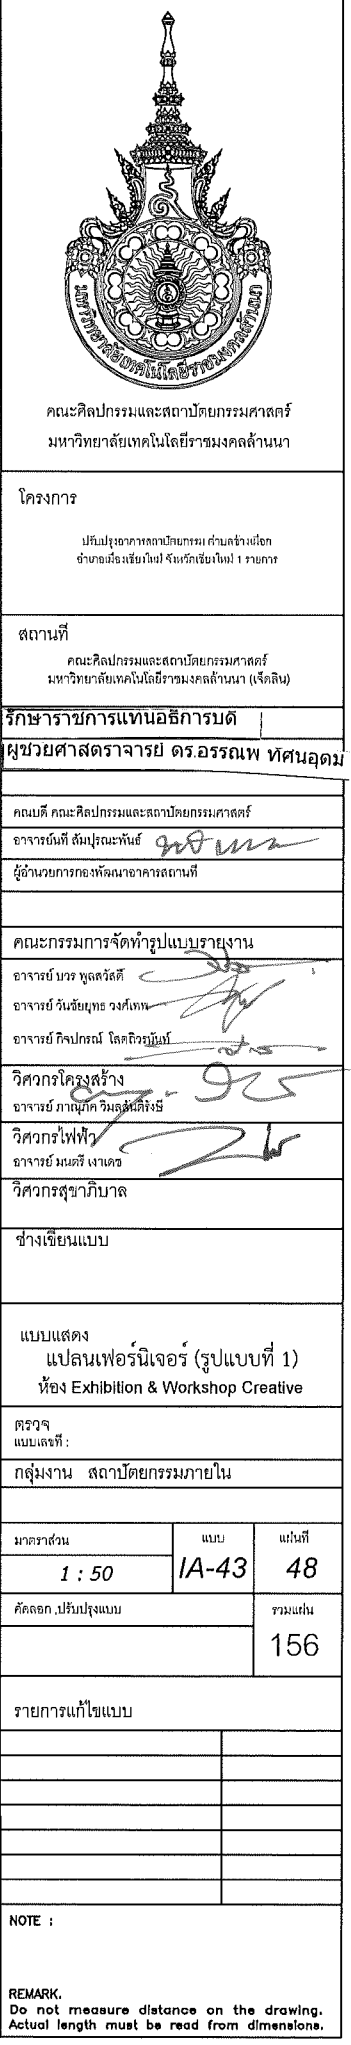 มหาวิทยาลัยเทคโนโลยีราชมงคลล้านนา
คณะศิลปกรรมและสถาปัตยกรรมศาสตร์
มหาวิทยาลัยเทคโนโลยีราชมงคลล้านนา
โครงการ
ปรับปรุงอาคารสถาปัตยกรรม ตำบลช้างเผือก
อำเภอเมืองเชียงใหม่ จังหวัดเชียงใหม่ 1 รายการ
สถานที่
คณะศิลปกรรมและสถาปัตยกรรมศาสตร์
มหาวิทยาลัยเทคโนโลยีราชมงคลล้านนา (เจ็ดลิน)
รักษาราชการแทนอธิการบดี
ผู้ช่วยศาสตราจารย์ ดร.อรรณพ ทัศนอุดม
คณบดี คณะศิลปกรรมและสถาปัตยกรรมศาสตร์
อาจารย์นที สัมปุรณะพันธ์
ผู้อำนวยการกองพัฒนาอาคารสถานที่
คณะกรรมการจัดทำรูปแบบรายงาน
อาจารย์ บวร พูลสวัสดิ์
อาจารย์ วันชัยยุทธ วงศ์เทพ
อาจารย์ กิจปกรณ์
วิศวกรโครงสร้าง
อาจารย์ ภาณุภัค
วิศวกรไฟฟ้า
อาจารย์ มนตรี เงาเดช
วิศวกรสุขาภิบาล
ช่างเขียนแบบ
แบบแสดง
แปลนเฟอร์นิเจอร์ (รูปแบบที่ 1)
ห้อง Exhibition & Workshop Creative
ตรวจ
แบบเลขที่ :
กลุ่มงาน สถาปัตยกรรมภายใน
มาตราส่วน แบบ แผ่นที่
1 : 50 IA-43 48
คัดลอก ,ปรับปรุงแบบ รวมแผ่น
156
รายการแก้ไขแบบ
NOTE :
REMARK.
Do not measure distance on the drawing.
Actual length must be read from dimensions.